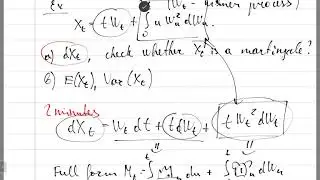 Ex (W_t - Wiener process)
X_t = t W_t + ∫_0^t u W_u^2 dW_u
a) dX_t, check whether X_t is a martingale?
b) E(X_t), Var(X_t)
2 minutes
dX_t = W_t dt + t dW_t + t W_t^2 dW_t
Full form M_t = ∫ du + ∫ dW_u